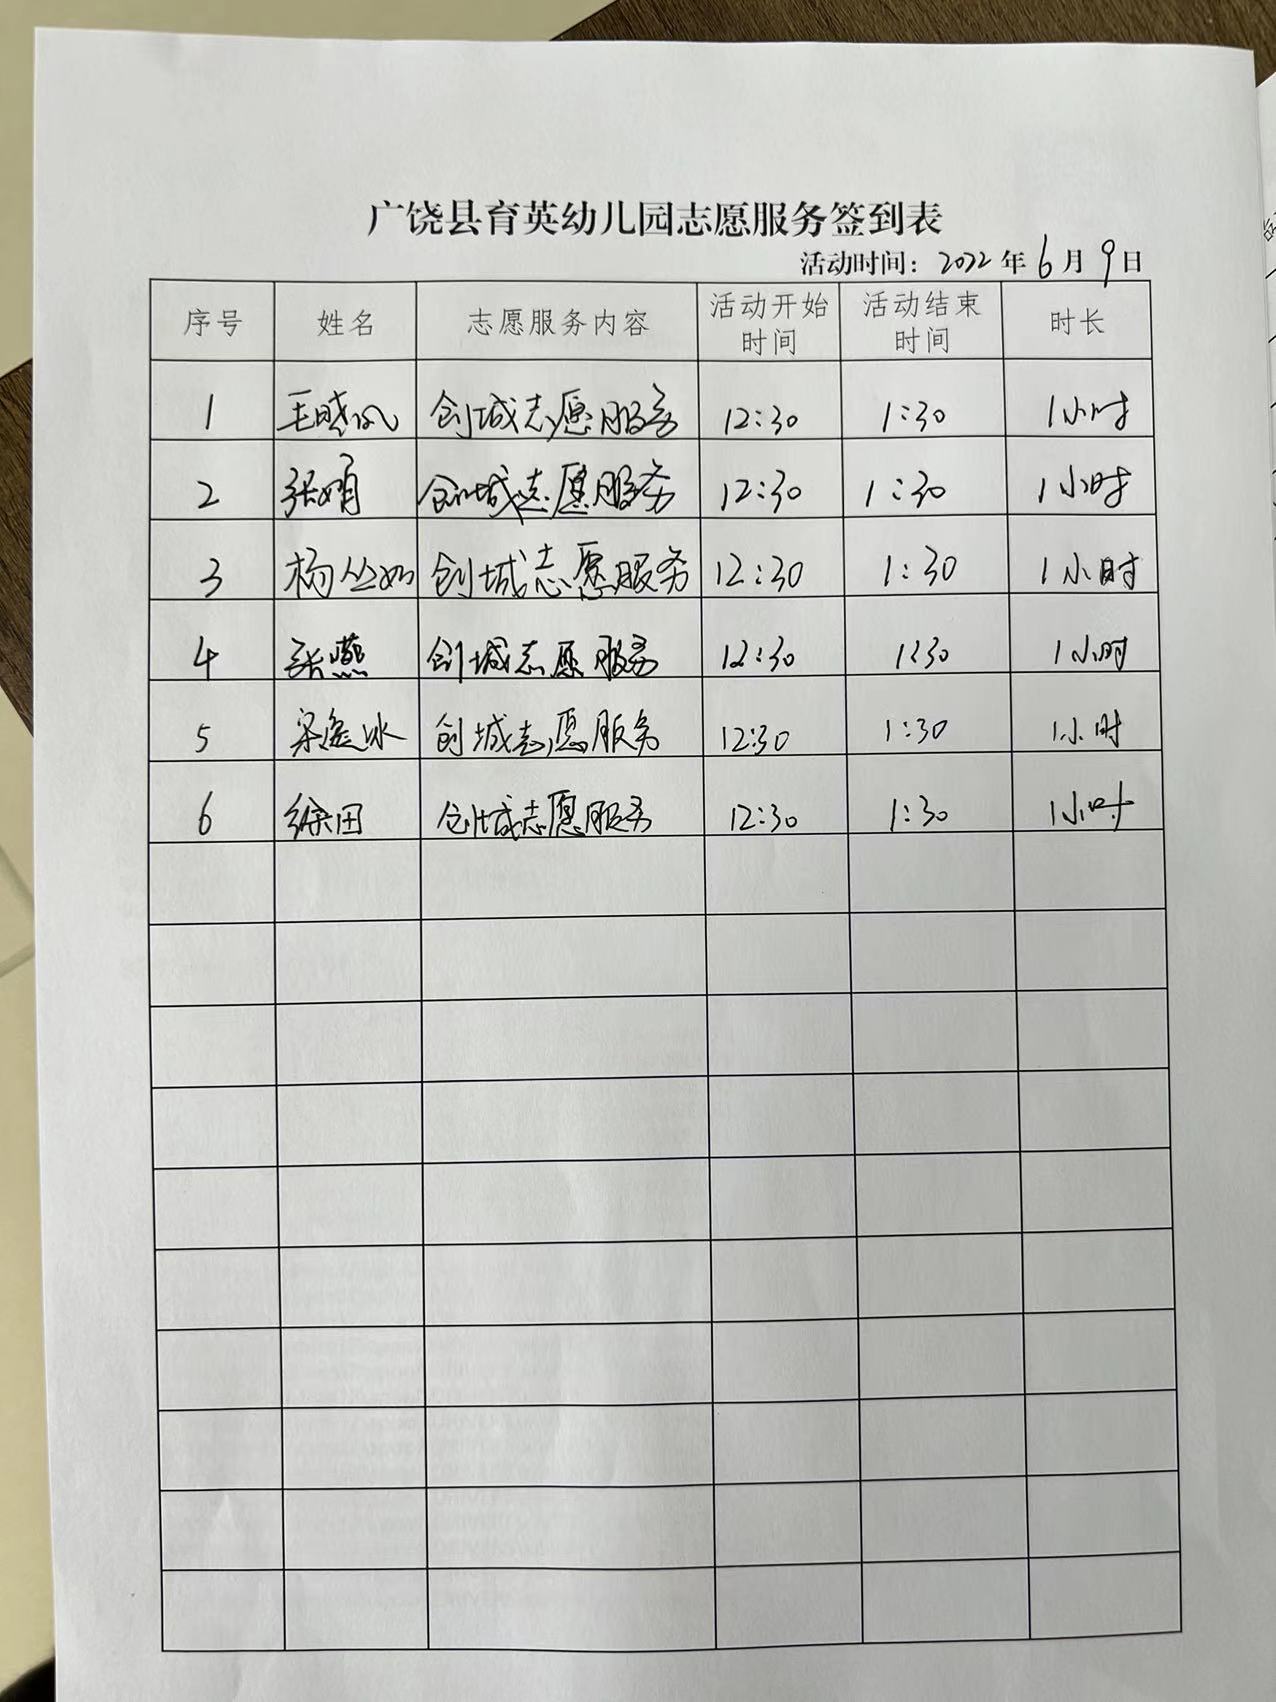 广饶县育英幼儿园志愿服务签到表
活动时间：2022年6月9日
序号 姓名 志愿服务内容 活动开始时间 活动结束时间 时长
1 王晓风 创城志愿服务 12:30 1:30 1小时
2 张娟 创城志愿服务 12:30 1:30 1小时
3 杨丛如 创城志愿服务 12:30 1:30 1小时
4 张燕 创城志愿服务 12:30 1:30 1小时
5 冰 创城志愿服务 12:30 1:30 1小时
6 徐田 创城志愿服务 12:30 1:30 1小时